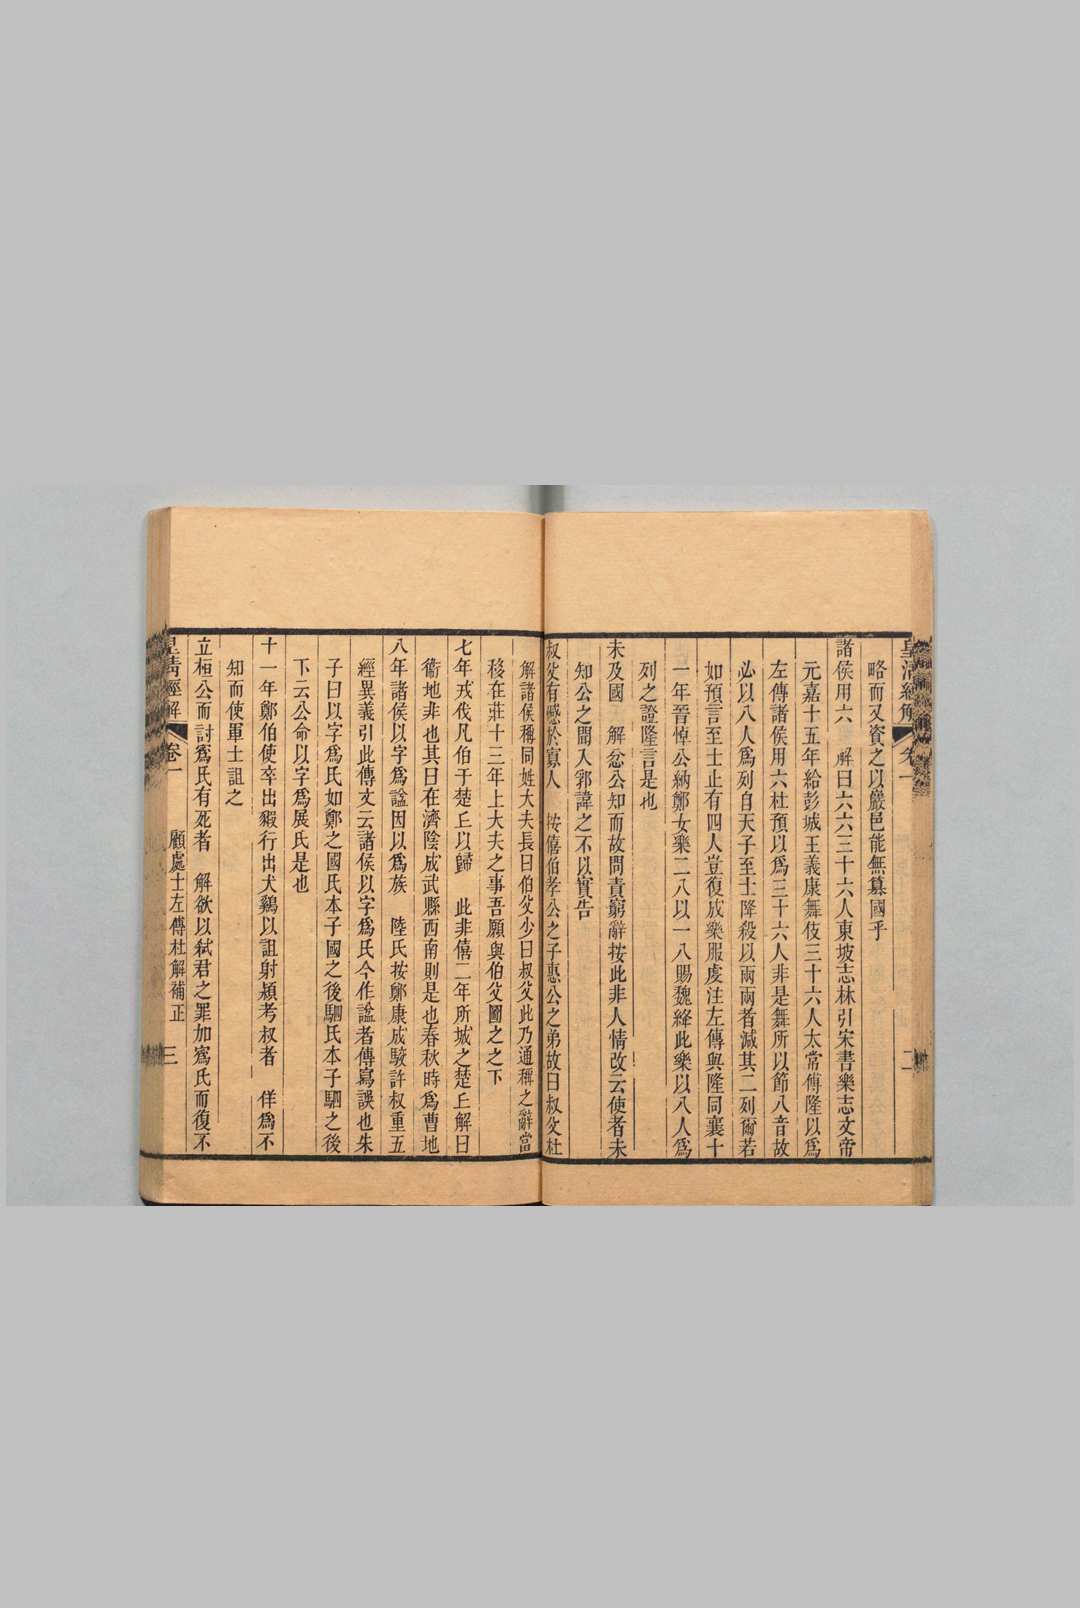 皇清經解 卷一 二
略而又資之以嚴邑能無篡國乎
諸侯用六 解曰六六三十六人東坡志林引宋書樂志文帝
元嘉十五年給彭城王義康舞伎三十六人太常傅隆以爲
左傳諸侯用六杜預以爲三十六人非是舞所以節八音故
必以八人爲列自天子至士降殺以兩兩者減其二列爾若
如預言至士止有四人豈復成樂服虔注左傳與隆同襄十
一年晉悼公納鄭女樂二八以一八賜魏絳此樂以八人爲
列之證隆言是也
未及國 解忿公知而故問責窮辭按此非人情改云使者未
知公之聞入郛諱之不以實告
叔父有憾於寡人 按僖伯孝公之子惠公之弟故曰叔父杜
解諸侯稱同姓大夫長曰伯父少曰叔父此乃通稱之辭當
移在莊十三年上大夫之事吾願與伯父圖之之下
七年戎伐凡伯于楚丘以歸 此非僖二年所城之楚丘解曰
衞地非也其曰在濟陰成武縣西南則是也春秋時爲曹地
八年諸侯以字爲諡因以爲族 陸氏按鄭康成駁許叔重五
經異義引此傳文云諸侯以字爲氏今作諡者傳寫誤也朱
子曰以字爲氏如鄭之國氏本子國之後駟氏本子駟之後
下云公命以字爲展氏是也
十一年鄭伯使卒出豭行出犬雞以詛射潁考叔者 佯爲不
知而使軍士詛之
立桓公而討寪氏有死者 解欲以弒君之罪加寪氏而復不
皇清經解 卷一 顧處士左傳杜解補正 三